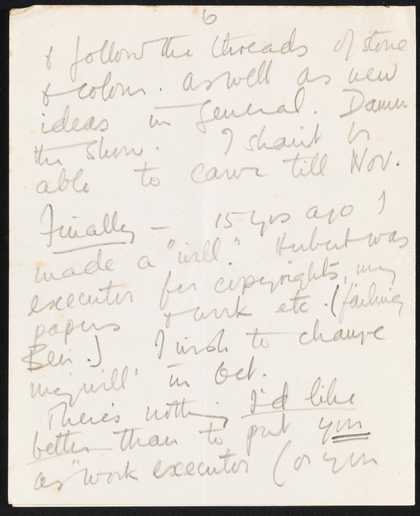 6
& follow the threads of stone
& colour. as well as new
ideas in General. Damn
the show. I shan't be
able to carve till Nov.
Finally – 15 yrs ago I
made a "will". Herbert was
executor for copyrights, my
papers & work etc. (failing
Ben.) I wish to change
my 'will' in Oct.
There's nothing I'd like
better than to put you
as "work executor (or you